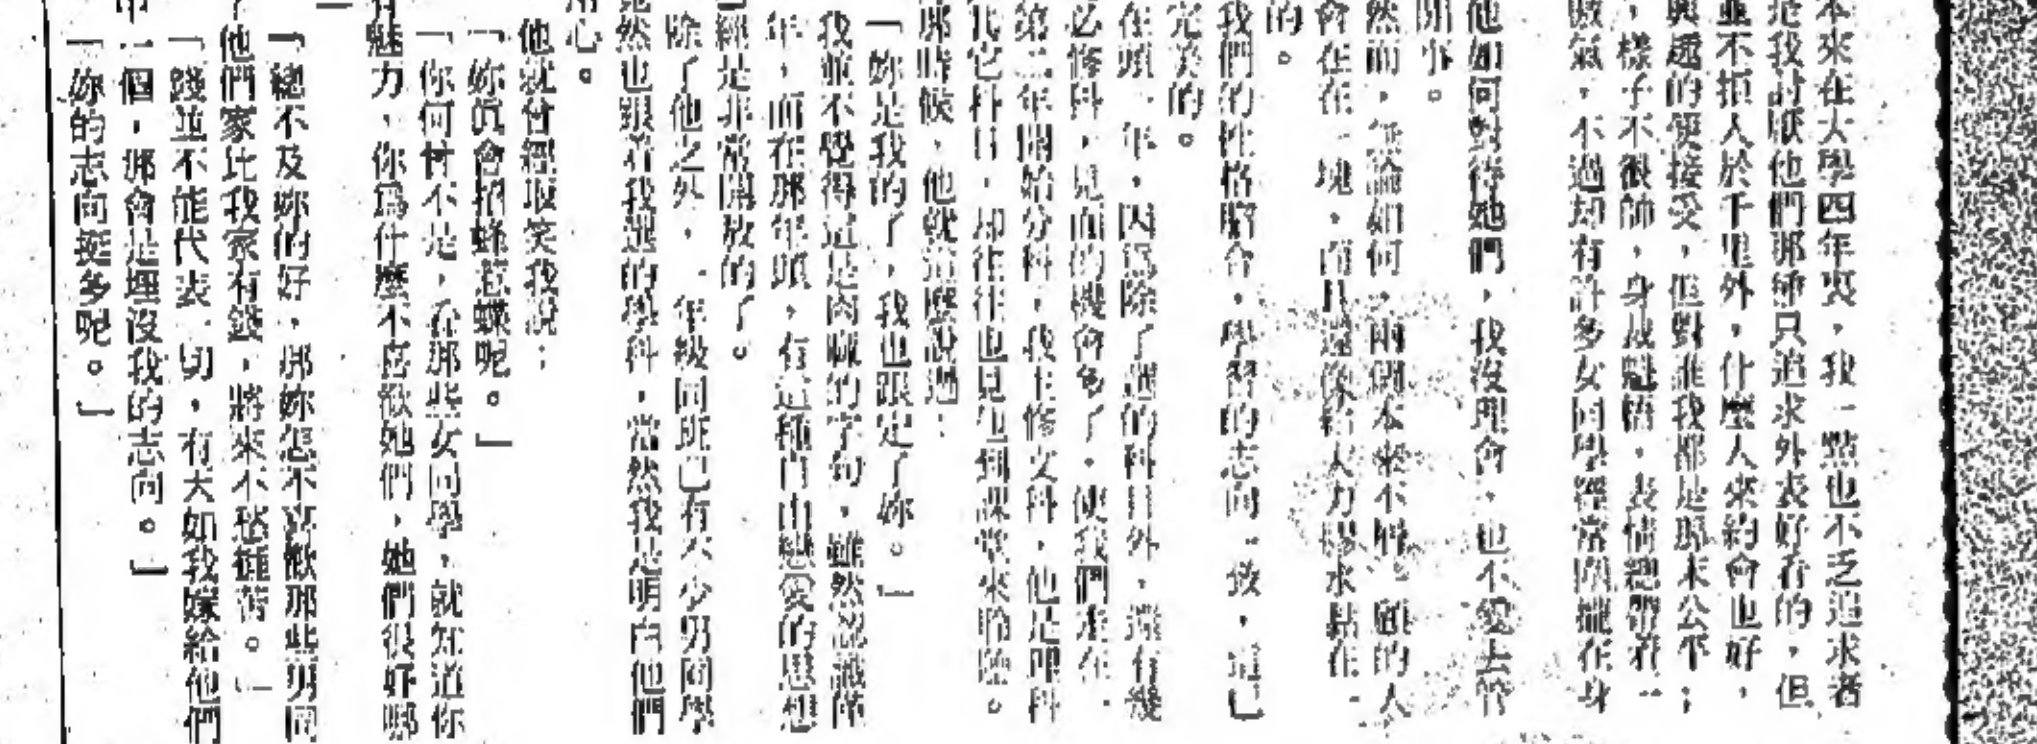 本來在大學四年裏，我一點也不乏追求者
是我討厭他們那種只追求外表好看的，但
並不拒人於千里外，什麼人來約會也好，
興趣的便接受，但對誰我都是那末公平；
，樣子不很帥，身裁魁梧，表情總帶着一
傲氣，不過却有許多女同學經常圍攏在身
他如何對待她們，我沒理會，也不愛去管
閒事。
然而，無論如何，兩個本來不屑一顧的人
會在在一塊，而且還像給大力膠水黏在一
的。
我們的性格脗合，學習的志向一致，這已
完美的。
在頭一年，因爲除了選的科目外，還有幾
必修科，見面的機會多了，使我們走在一
第二年開始分科，我主修文科，他是理科
其它科目，却往往也見他到課堂來聆聽。
那時候，他就這麼說過：
「妳是我的了，我也跟定了妳。」
我並不覺得這是肉麻的字句，雖然認識
年，而在那年頭，有這種自由戀愛的思想
經是非常開放的了。
除了他之外，一年級同班已有不少男同學
然也跟着我選的學科，當然我是明白他們
用心。
他就曾經取笑我說：
「妳眞會招蜂惹蝶呢。」
「你何嘗不是，看那些女同學，就知道你
有魅力，你爲什麼不喜歡她們，她們很好那
」
「總不及妳的好，那妳怎不喜歡那些男同
他們家比我家有錢，將來不愁捱苦。」
「錢並不能代表一切，有大如我嫁給他們
中一個，那會是埋沒我的志向。」
「妳的志向挺多呢。」